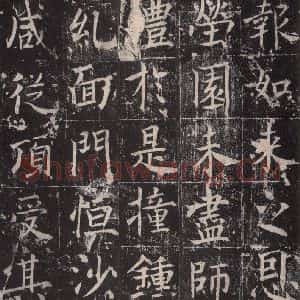 報如來之恩
園未盡師
豊於是撞鍾
面門恒沙
咸從頂受
shufawang.cn